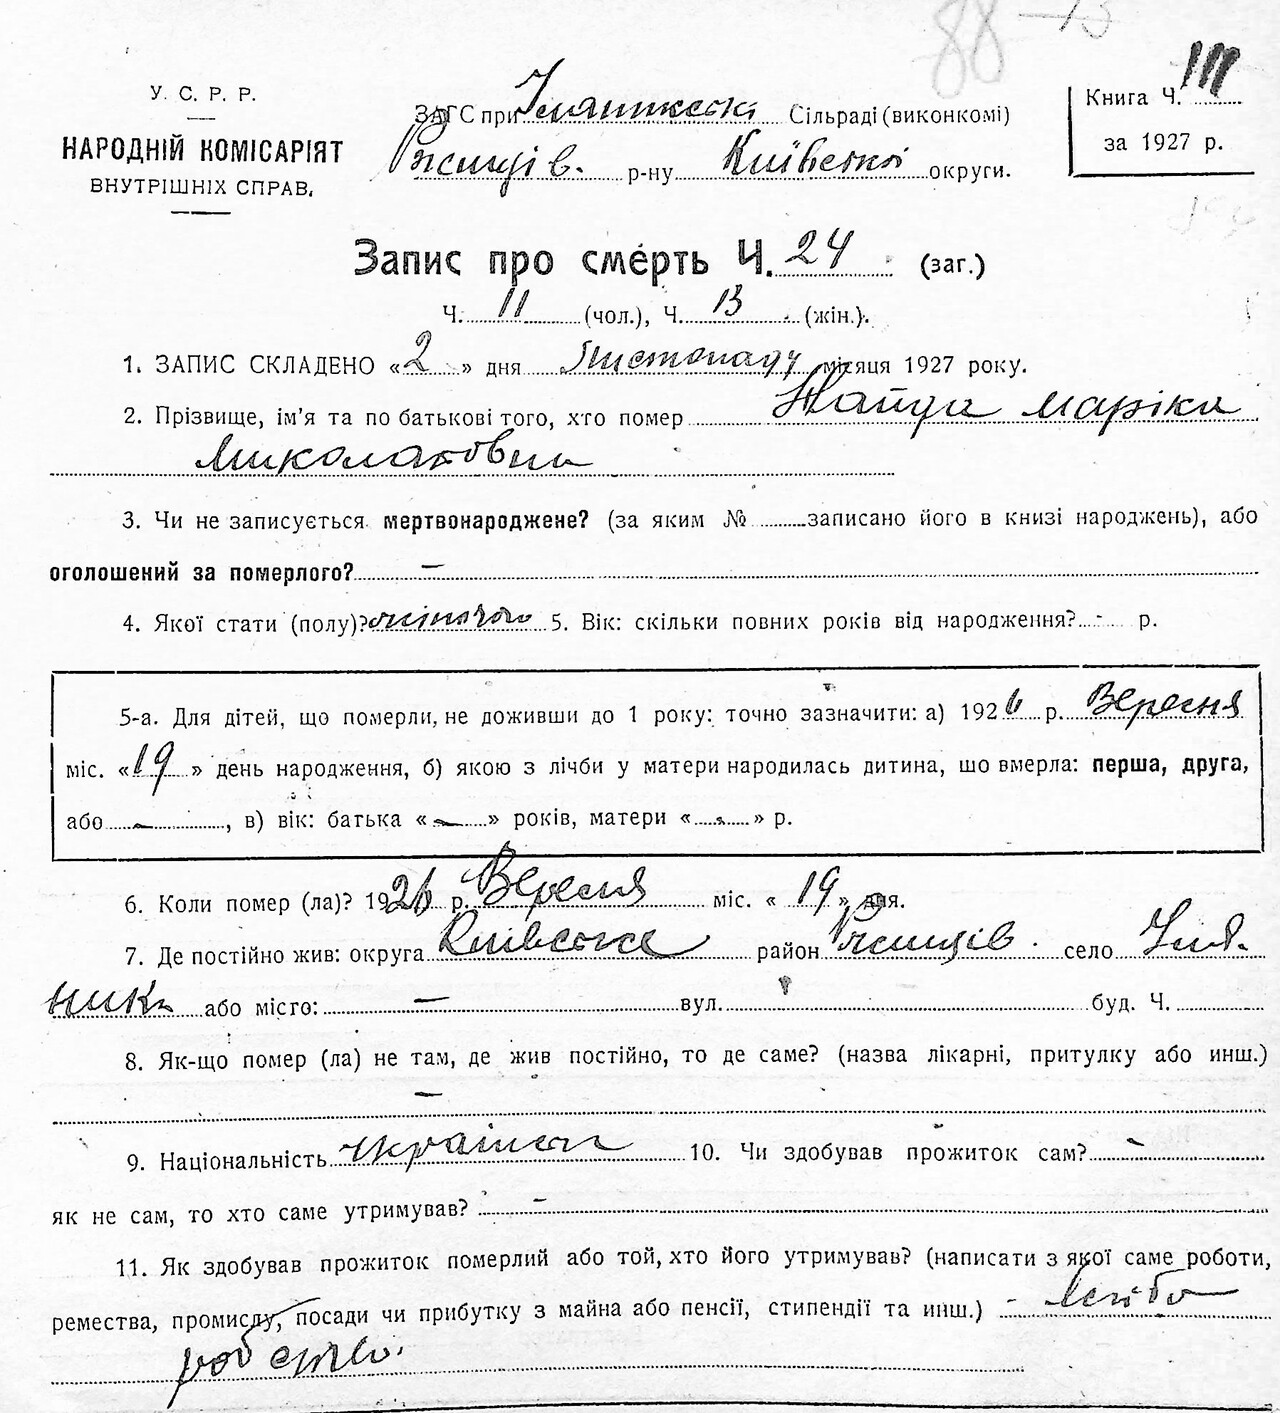 88 – 13
У. С. Р. Р.
НАРОДНІЙ КОМІСАРІЯТ
ВНУТРІШНІХ СПРАВ.
ЗАГС при Сільраді (виконкомі)
Ржищів. р-ну Київської округи.
Книга Ч. III
за 1927 р.
Запис про смерть Ч. 24 (заг.)
Ч. 11 (чол.), Ч. 13 (жін.).
1. ЗАПИС СКЛАДЕНО «2» дня Листопаду місяця 1927 року.
2. Прізвище, ім'я та по батькові того, хто помер Найда Маріка
Миколаовна
3. Чи не записується мертвонароджене? (за яким № записано його в книзі народжень), або
оголошений за померлого? –
4. Якої стати (полу)? жіночого 5. Вік: скільки повних років від народження? - р.
5-а. Для дітей, що померли, не доживши до 1 року: точно зазначити: а) 1926 р. Вересня
міс. «19» день народження, б) якою з лічби у матери народилась дитина, що вмерла: перша, друга,
або –, в) вік: батька «–» років, матери «-» р.
6. Коли помер (ла)? 1926 р. Вересня міс. «19» дня.
7. Де постійно жив: округа Київська район Ржищів. село Уля-
ники або місто: – вул. буд. Ч.
8. Як-що помер (ла) не там, де жив постійно, то де саме? (назва лікарні, притулку або инш.)
–
9. Національність україн 10. Чи здобував прожиток сам? –
як не сам, то хто саме утримував? –
11. Як здобував прожиток померлий або той, хто його утримував? (написати з якої саме роботи,
ремества, промислу, посади чи прибутку з майна або пенсії, стипендії та инш.) - хлібо
робство.